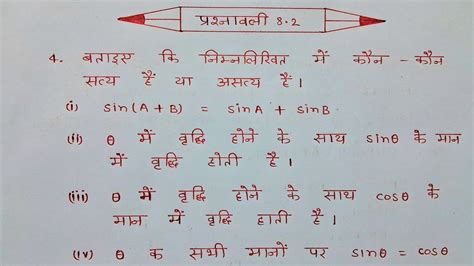 प्रश्नावली 8.2
4. बताइए कि निम्नलिखित में कौन - कौन
सत्य हैं या असत्य हैं।
(i) sin(A + B) = sinA + sinB.
(ii) θ में वृद्धि होने के साथ sinθ के मान
में वृद्धि होती है।
(iii) θ में वृद्धि होने के साथ cosθ के
मान में वृद्धि होती है।
(iv) θ के सभी मानों पर sinθ = cosθ